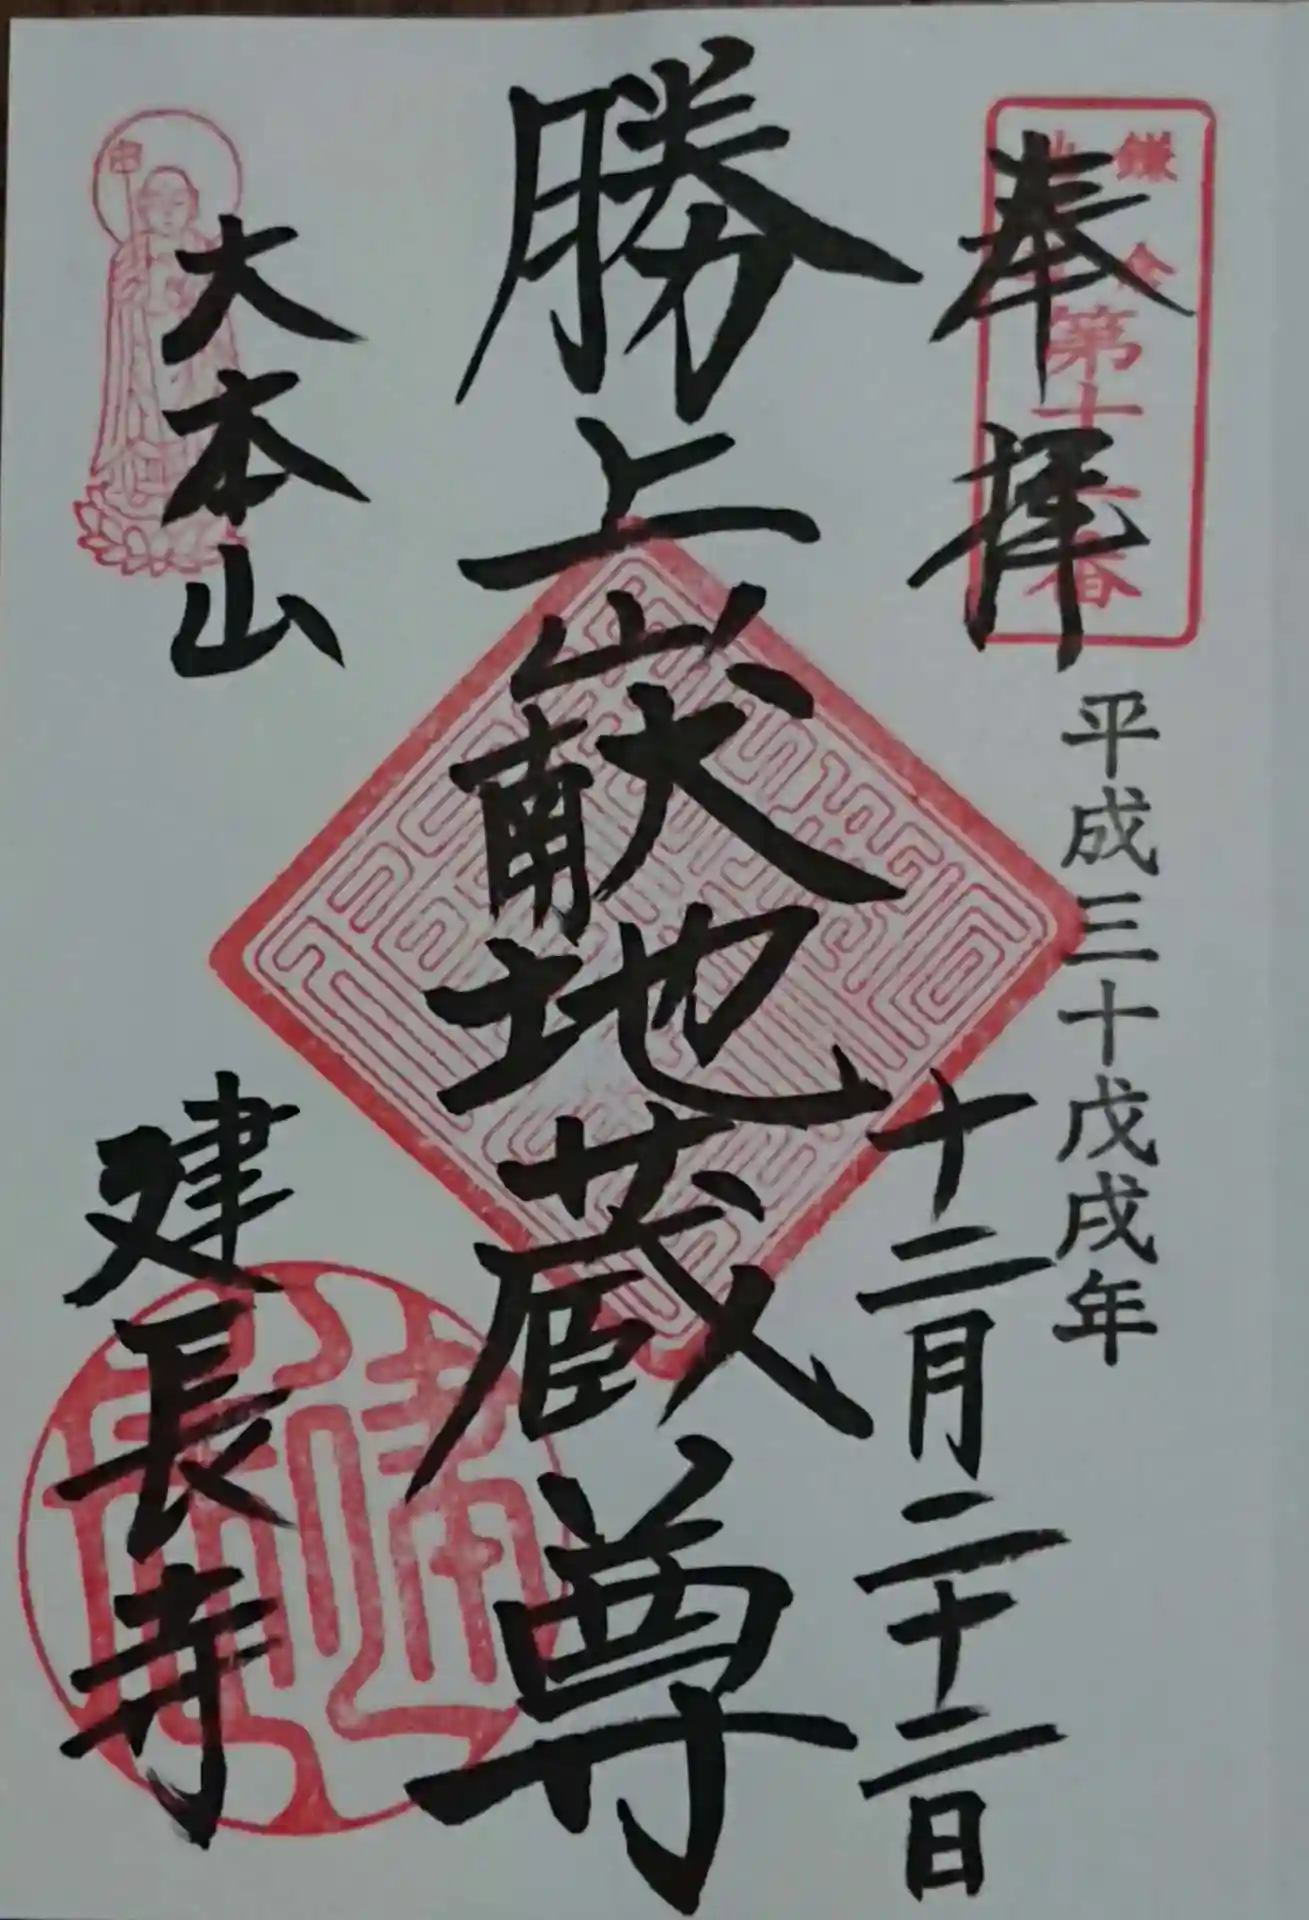 奉拝
鎌倉
第十一番
平成三十戊戌年
十二月二十二日
勝上嶽地蔵尊
大本山
建長寺